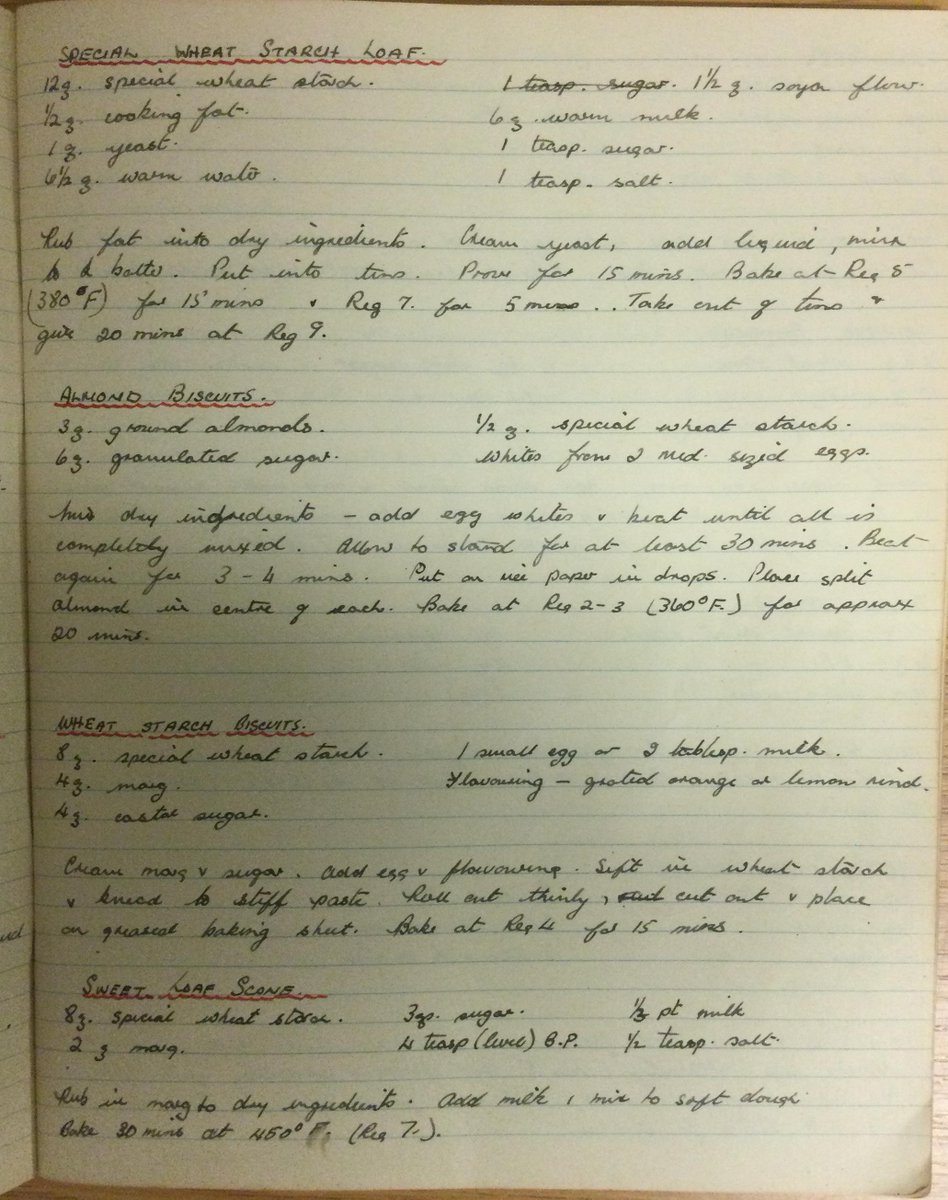 SPECIAL WHEAT STARCH LOAF.
12 oz. special wheat starch. 1 teasp. sugar. 1 1/2 oz. soya flour.
1/2 oz. cooking fat. 6 oz. warm milk.
1 oz. yeast. 1 teasp. sugar.
6 1/2 oz. warm water. 1 teasp. salt.
Rub fat into dry ingredients. Cream yeast, add liquid, mix
to a batter. Put into tins. Prove for 15 mins. Bake at Reg 5
(380°F) for 15 mins & Reg 7. for 5 mins. . Take out of tins &
give 20 mins at Reg 9.
ALMOND BISCUITS.
3 oz. ground almonds. 1/2 oz. special wheat starch.
6 oz. granulated sugar. Whites from 2 med. sized eggs.
Mix dry ingredients - add egg whites & beat until all is
completely mixed. Allow to stand for at least 30 mins. Beat
again for 3 - 4 mins. Put on rice paper in drops. Place split
almond in centre of each. Bake at Reg 2-3 (360°F.) for approx
20 mins.
WHEAT STARCH BISCUITS.
8 oz. special wheat starch. 1 small egg or 2 tablesp. milk.
4 oz. marg. Flavouring - grated orange or lemon rind.
4 oz. castor sugar.
Cream marg & sugar. Add egg & flavouring. Sift in wheat starch
& knead to stiff paste. Roll out thinly, cut out & place
on greased baking sheet. Bake at Reg 4 for 15 mins.
SWEET LOAF SCONE.
8 oz. special wheat starch. 3 ozs. sugar. 1/3 pt milk
2 oz marg. 4 teasp (level) B.P. 1/2 teasp. salt.
Rub in marg to dry ingredients. Add milk, mix to soft dough
Bake 30 mins at 450°F. (Reg 7.).